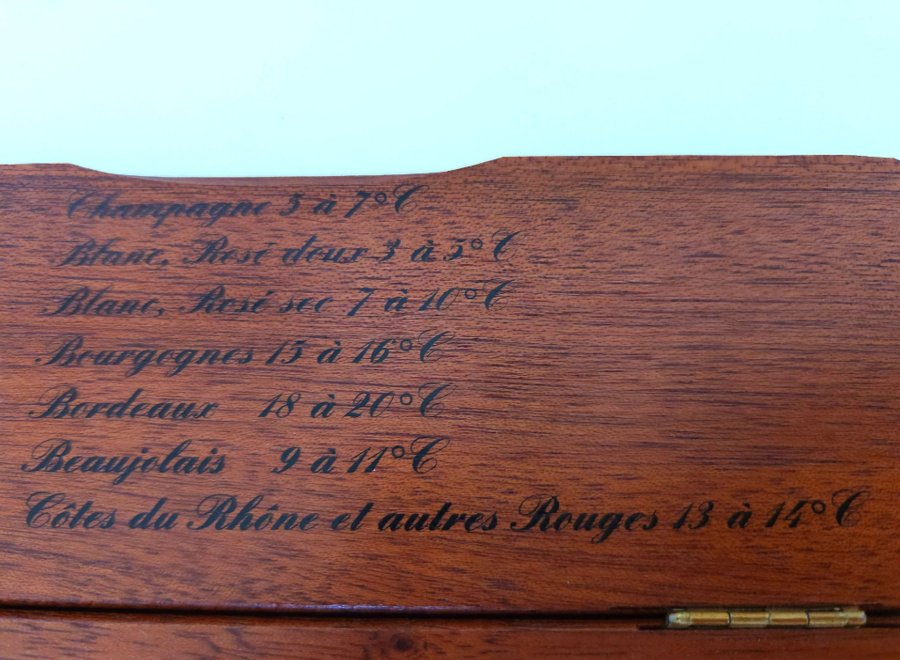 Champagne 5 à 7°C
Blanc, Rosé doux 3 à 5°C
Blanc, Rosé sec 7 à 10°C
Bourgognes 15 à 16°C
Bordeaux 18 à 20°C
Beaujolais 9 à 11°C
Côtes du Rhône et autres Rouges 13 à 14°C